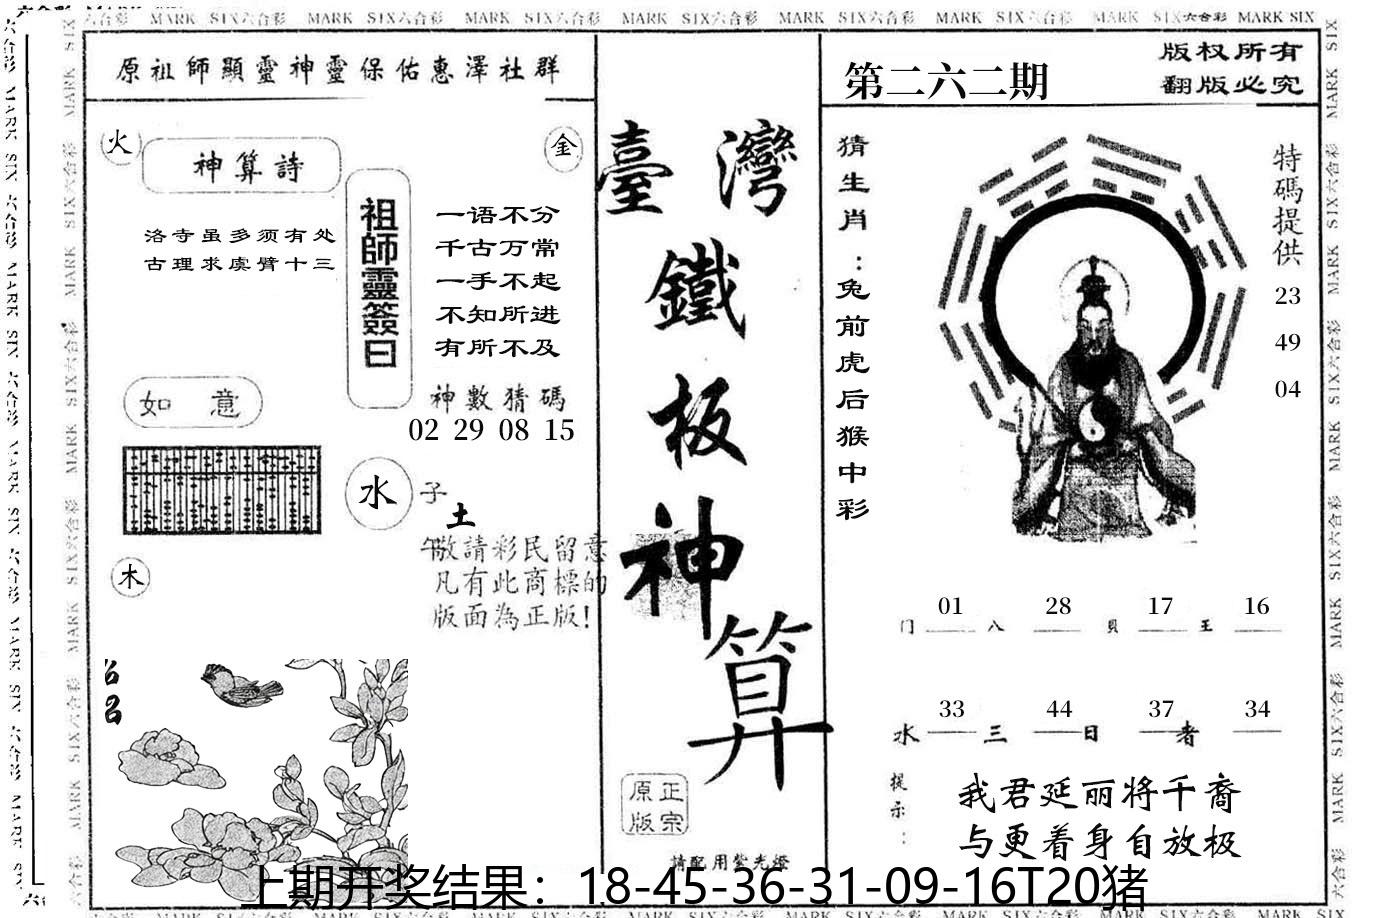 MARK SIX六合彩 MARK SIX六合彩 MARK SIX六合彩 MARK SIX六合彩 MARK SIX六合彩 MARK SIX六合彩 MARK SIX六合彩 MARK SIX
原祖師顯靈神靈保佑惠澤社群
火
神算詩
金
洛寺虽多须有处
古理求虞臂十三
祖師靈簽曰
一语不分
千古万常
一手不起
不知所进
有所不及
神數猜碼
02 29 08 15
如意
水
子
土
午
敬請彩民留意
凡有此商標的
版面為正版!
木
臺灣
鐵
板
神
算
正宗
原版
請配用紫光燈
第二六二期
版权所有
翻版必究
猜生肖:兔前虎后猴中彩
特碼提供
23
49
04
01 28 17 16
门 八 貝 王
33 44 37 34
水 三 日 者
提示:
我君延丽将千裔
与更着身自放极
上期开奖结果：18-45-36-31-09-16T20猪